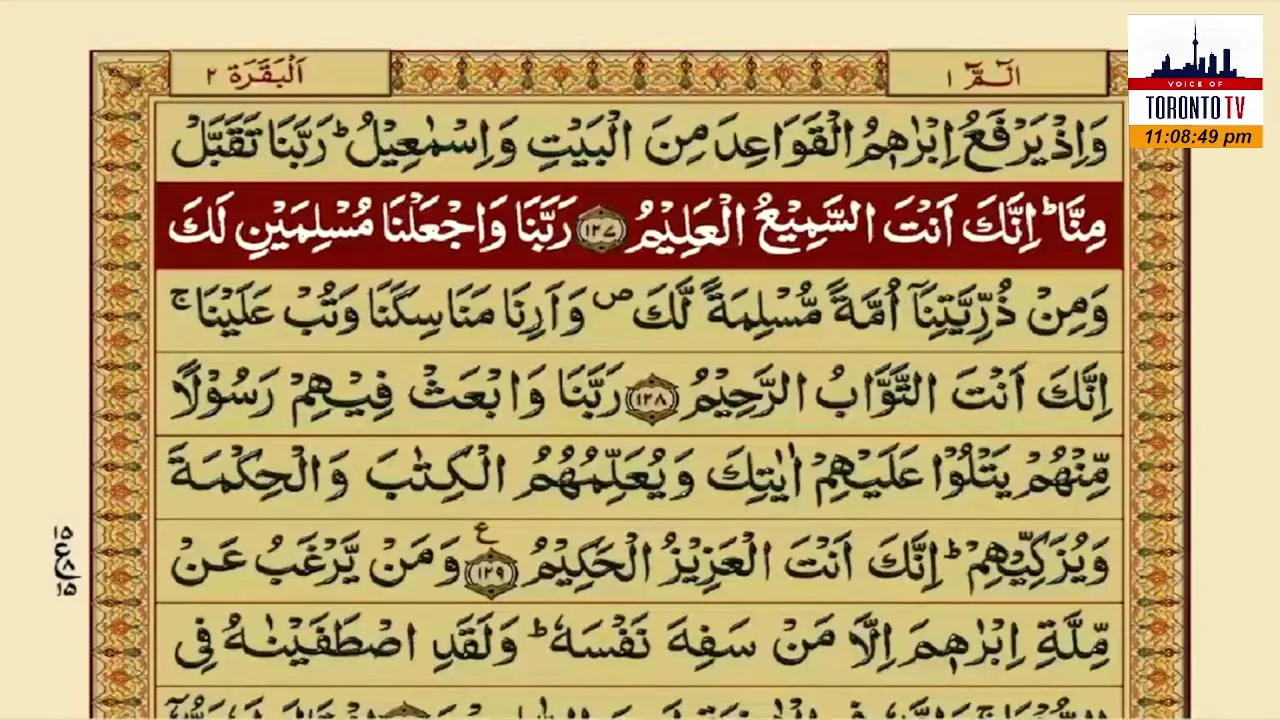 الٓمّٓ ١
اَلْبَقَرَة ٢
VOICE OF
TORONTO TV
11:08:49 pm
وَاِذْ يَرْفَعُ اِبْرٰهٖمُ الْقَوَاعِدَ مِنَ الْبَيْتِ وَاِسْمٰعِيْلُ ؕ رَبَّنَا تَقَبَّلْ
مِنَّا ؕ اِنَّكَ اَنْتَ السَّمِيْعُ الْعَلِيْمُ ۝١٢٧ رَبَّنَا وَاجْعَلْنَا مُسْلِمَيْنِ لَكَ
وَمِنْ ذُرِّيَّتِنَاۤ اُمَّةً مُّسْلِمَةً لَّكَ ص وَاَرِنَا مَنَاسِكَنَا وَتُبْ عَلَيْنَا ۚ
اِنَّكَ اَنْتَ التَّوَّابُ الرَّحِيْمُ ۝١٢٨ رَبَّنَا وَابْعَثْ فِيْهِمْ رَسُوْلًا
مِّنْهُمْ يَتْلُوْا عَلَيْهِمْ اٰيٰتِكَ وَيُعَلِّمُهُمُ الْكِتٰبَ وَالْحِكْمَةَ
وَيُزَكِّيْهِمْ ؕ اِنَّكَ اَنْتَ الْعَزِيْزُ الْحَكِيْمُ ۝١٢٩ ع وَمَنْ يَّرْغَبُ عَنْ
مِّلَّةِ اِبْرٰهٖمَ اِلَّا مَنْ سَفِهَ نَفْسَهٗ ؕ وَلَقَدِ اصْطَفَيْنٰهُ فِى